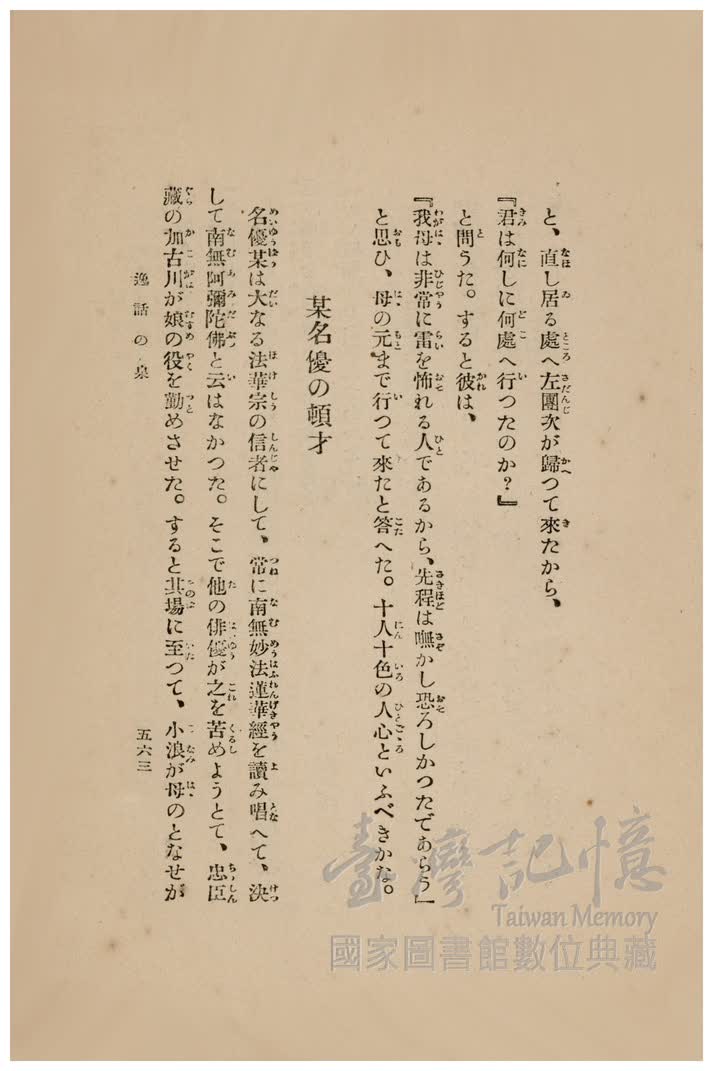 と、直し居る處へ左團次が歸つて來たから、
『君は何しに何處へ行つたのか?』
と問うた。すると彼は、
『我母は非常に雷を怖れる人であるから、先程は嘸かし恐ろしかつたであらう」
と思ひ、母の元まで行つて來たと答へた。十人十色の人心といふべきかな。
某名優の頓才
名優某は大なる法華宗の信者にして、常に南無妙法蓮華經を讀み唱へて、決
して南無阿彌陀佛と云はなかつた。そこで他の俳優が之を苦めようとて、忠臣
藏の加古川が娘の役を勤めさせた。すると其場に至つて、小浪が母のとなせが
逸話の泉
五六三
臺灣記憶
Taiwan Memory
國家圖書館數位典藏